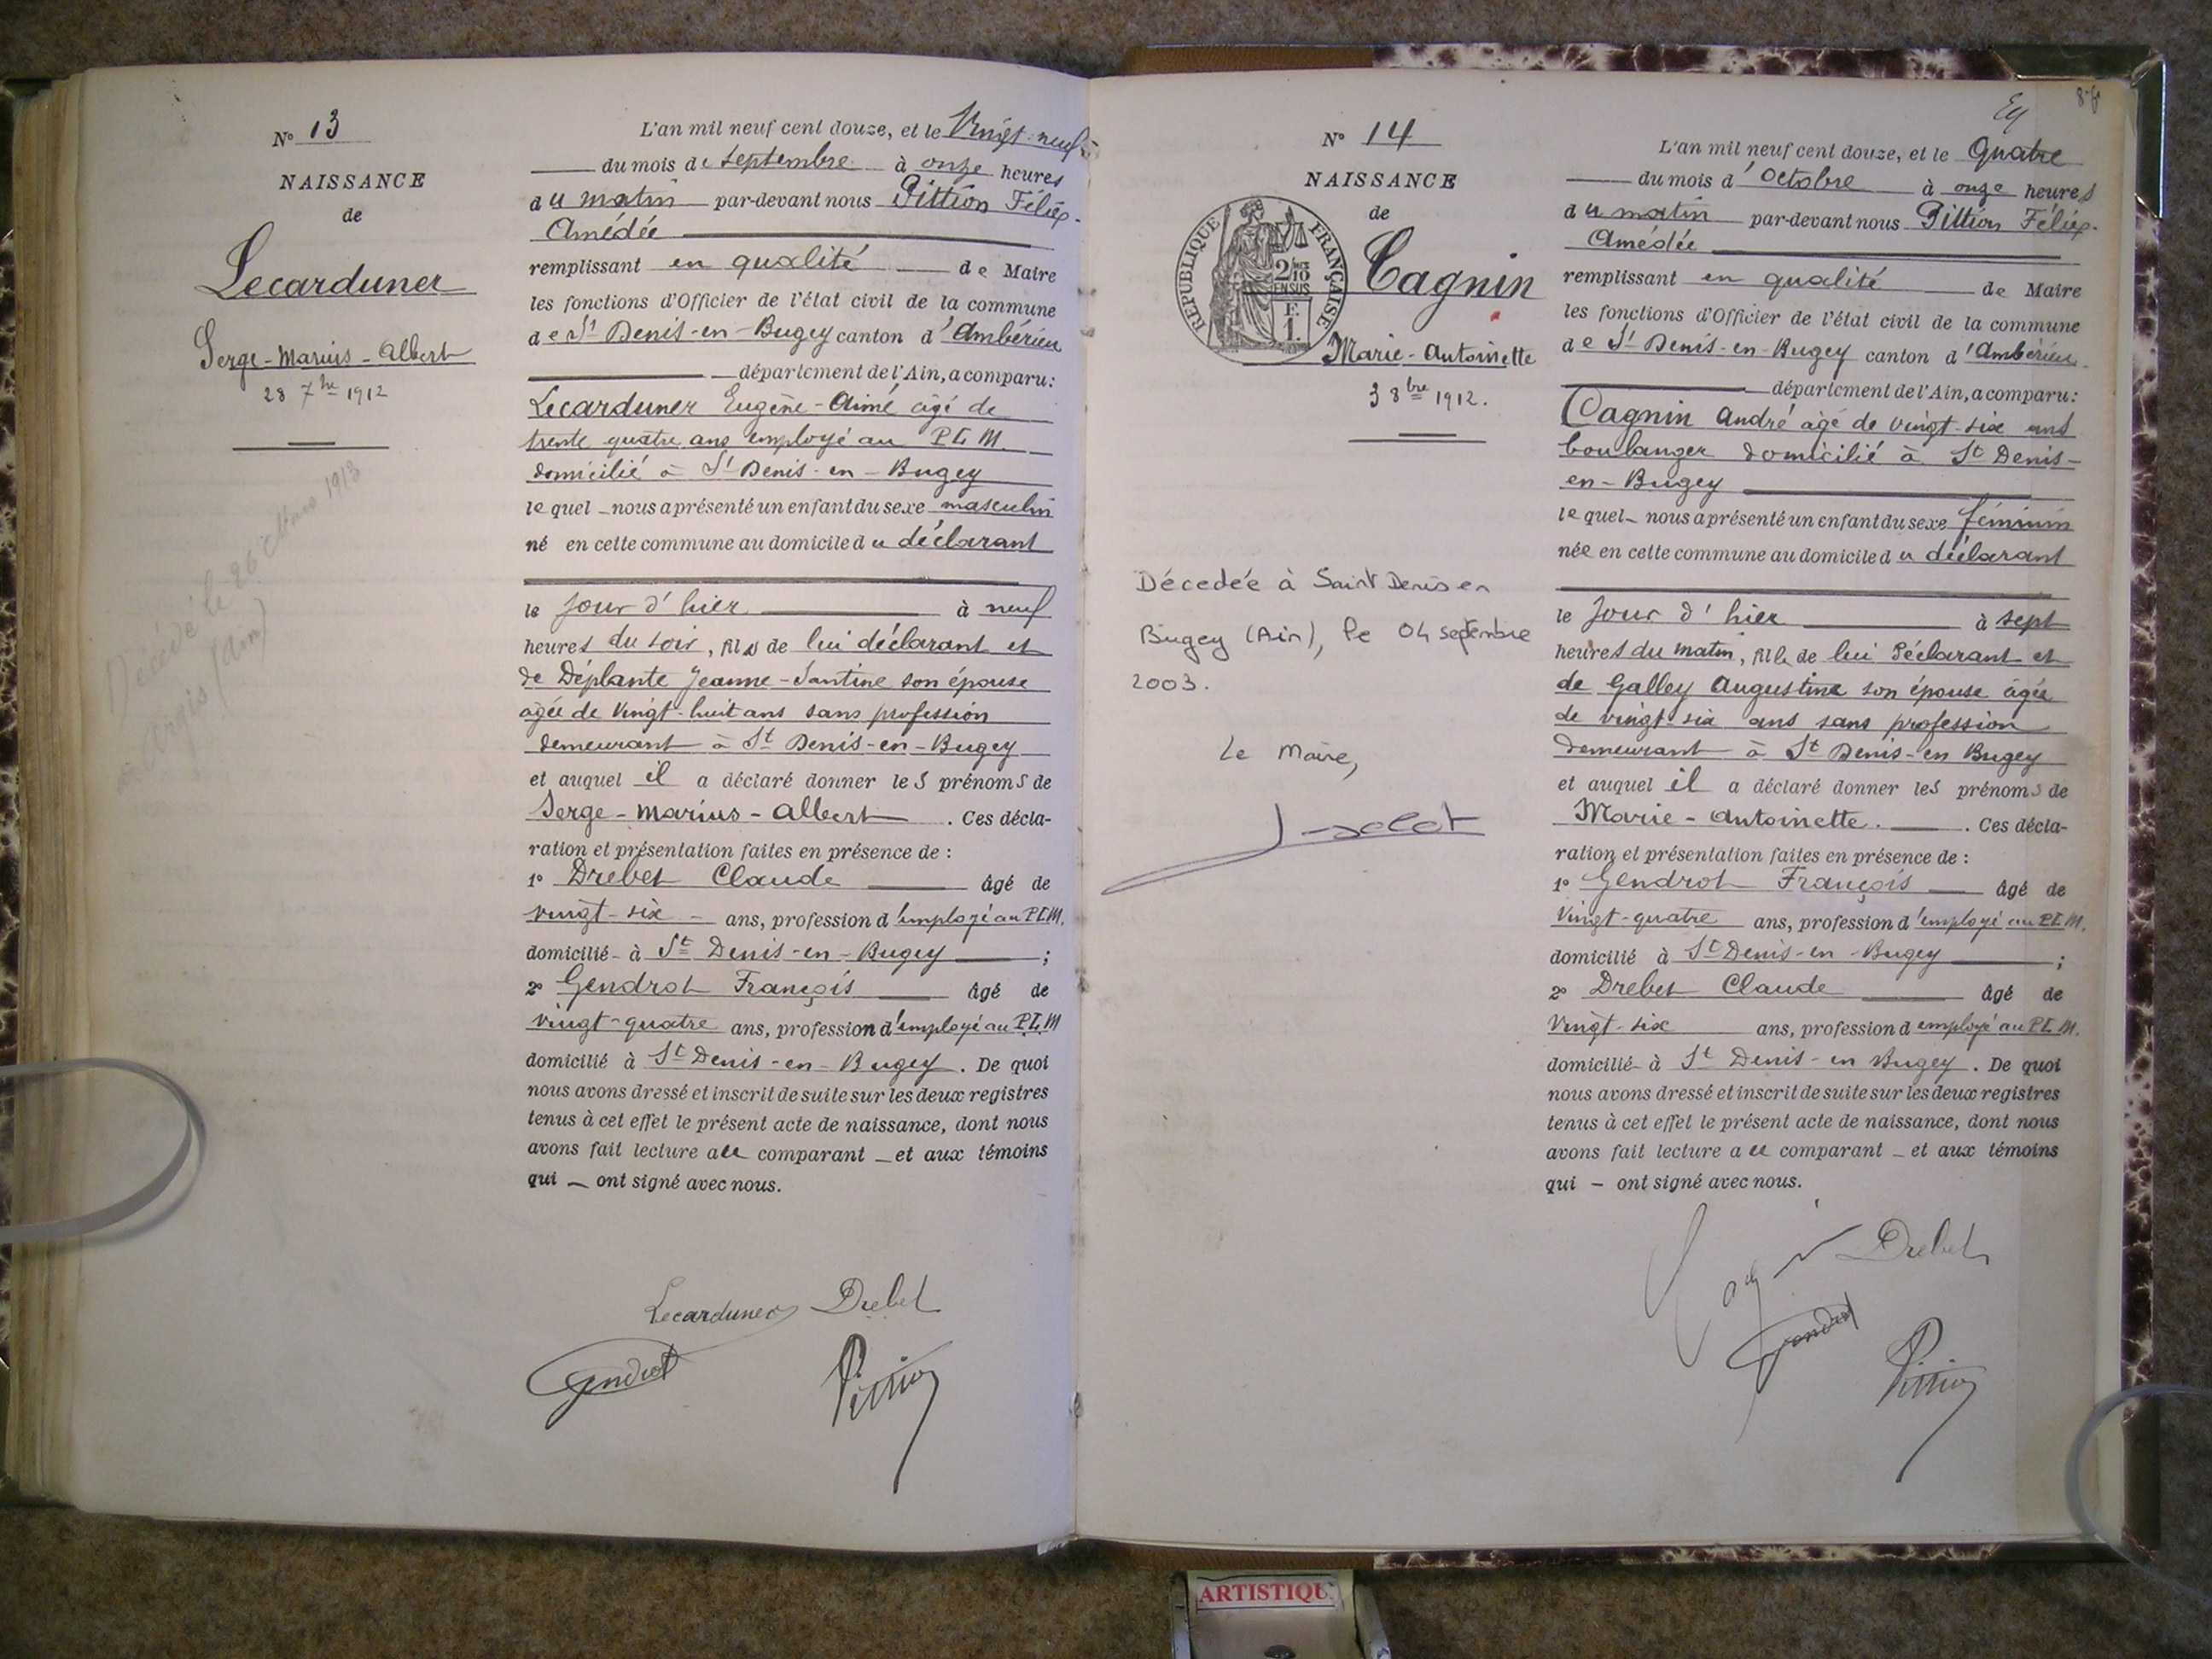 N° 13
NAISSANCE
de
Lecarduner
Serge-Marius-Albert
28 7bre 1912
Décédé le 26 Mars 1913
(Ain)
L'an mil neuf cent douze, et le Vingt-neuf
du mois de septembre à onze heures
du matin par-devant nous Pittion Félix-
Amédée
remplissant en qualité de Maire
les fonctions d'Officier de l'état civil de la commune
de St Denis-en-Bugey canton d'Ambérieu
département de l'Ain, a comparu:
Lecarduner Eugène-Aimé âgé de
trente quatre ans employé au P.L.M.
domicilié à St Denis-en-Bugey
lequel nous a présenté un enfant du sexe masculin
né en cette commune au domicile du déclarant
le jour d'hier à neuf
heures du soir, fils de lui déclarant et
de Déplante Jeanne-Santine son épouse
âgée de vingt-huit ans sans profession
demeurant à St Denis-en-Bugey
et auquel il a déclaré donner les prénoms de
Serge-Marius-Albert. Ces décla-
ration et présentation faites en présence de :
1° Drebet Claude âgé de
vingt-six ans, profession d'employé au P.L.M.
domicilié à St Denis-en-Bugey ;
2° Gendrot François âgé de
vingt-quatre ans, profession d'employé au P.L.M
domicilié à St Denis-en-Bugey. De quoi
nous avons dressé et inscrit de suite sur les deux registres
tenus à cet effet le présent acte de naissance, dont nous
avons fait lecture au comparant et aux témoins
qui ont signé avec nous.
Lecarduner Drebet
Gendrot Pittion
N° 14
NAISSANCE
de
REPUBLIQUE FRANÇAISE
2/10
EN SUS
F.
1.
Cagnin
Marie-Antoinette
3 8bre 1912.
Décedée à Saint Denis en
Bugey (Ain), le 04 septembre
2003.
Le Maire,
L'an mil neuf cent douze, et le Quatre
du mois d'Octobre à onze heures
du matin par-devant nous Pittion Félix-
Amédée
remplissant en qualité de Maire
les fonctions d'Officier de l'état civil de la commune
de St Denis-en-Bugey canton d'Ambérieu
département de l'Ain, a comparu:
Cagnin André âgé de vingt-six ans
boulanger domicilié à St Denis-
en-Bugey
lequel nous a présenté un enfant du sexe féminin
née en cette commune au domicile du déclarant
le jour d'hier à sept
heures du matin, fille de lui déclarant et
de Galley Augustine son épouse âgée
de vingt-six ans sans profession
demeurant à St Denis-en Bugey
et auquel il a déclaré donner les prénoms de
Marie-Antoinette. Ces décla-
ration et présentation faites en présence de :
1° Gendrot François âgé de
Vingt-quatre ans, profession d'employé au P.L.M.
domicilié à St Denis-en-Bugey ;
2° Drebet Claude âgé de
Vingt-six ans, profession d employé au P.L.M.
domicilié à St Denis-en Bugey. De quoi
nous avons dressé et inscrit de suite sur les deux registres
tenus à cet effet le présent acte de naissance, dont nous
avons fait lecture au comparant et aux témoins
qui ont signé avec nous.
Cagnin Drebet
Gendrot Pittion
ARTISTIQU